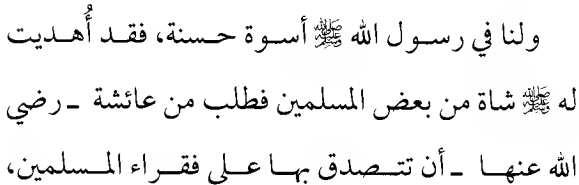 ولنا في رسول الله ﷺ أسوة حسنة، فقد أُهديت
له ﷺ شاة من بعض المسلمين فطلب من عائشة - رضي
الله عنها - أن تتصدق بها على فقراء المسلمين،